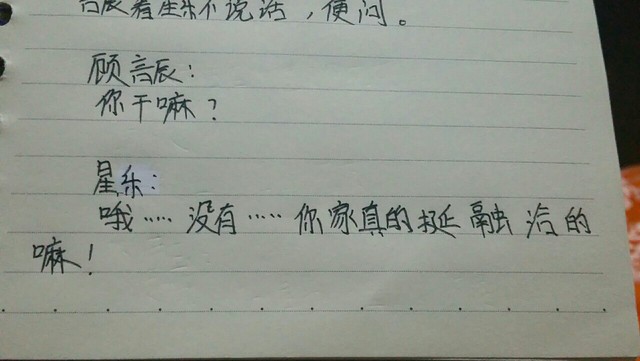 言辰看星乐不说话，便问。
顾言辰：
你干嘛？
星乐：
哦……没有……你家真的挺融洽的
嘛！